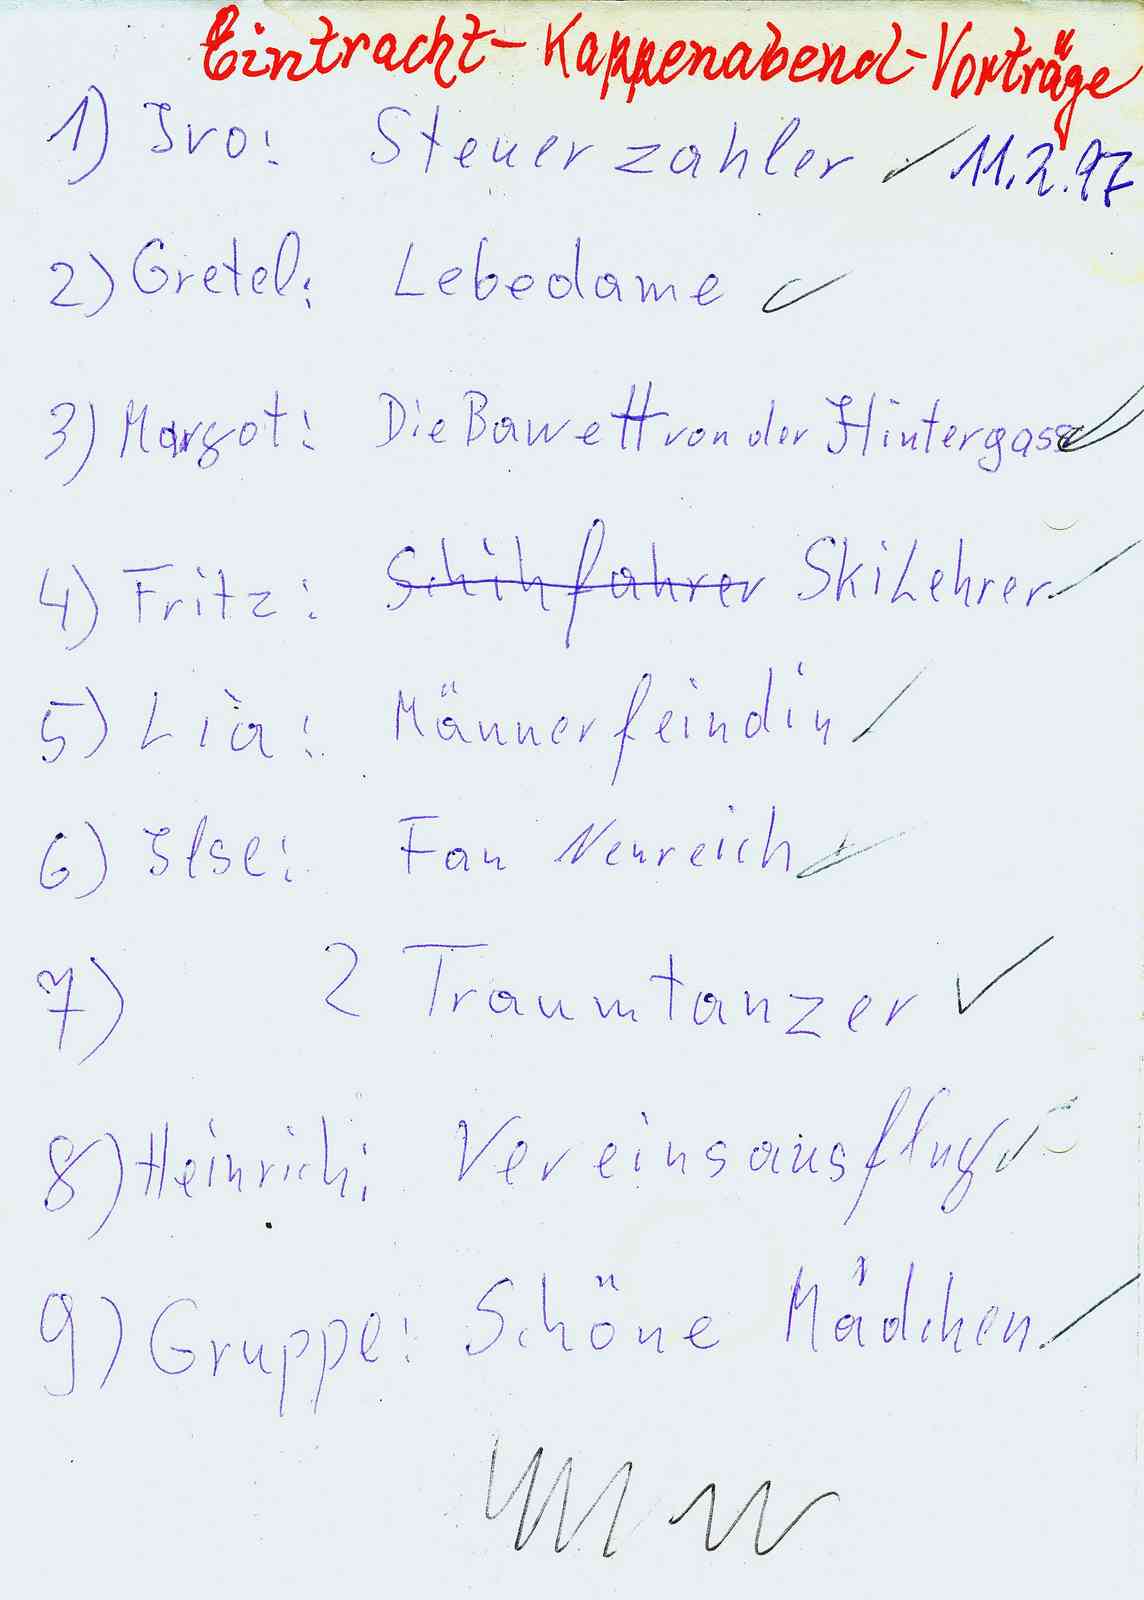 Eintracht-Kappenabend-Vorträge
1) Ivo: Steuerzahler 11.2.97
2) Gretel: Lebedame
3) Margot: Die Bawett von der Hintergass
4) Fritz: Schihfahrer SkiLehrer
5) Lia: Männerfeindin
6) Ilse: Fan Neureich
7) 2 Traumtanzer
8) Heinrich: Vereinsausflug
9) Gruppe: Schöne Mädchen